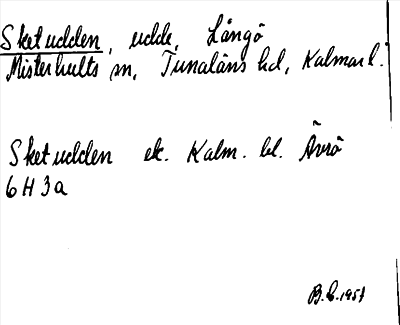 Sketudden, udde, Långö
Misterhults sn, Tunaläns hd, Kalmar l.
Sketudden ek. Kalm. bl. Ävrö
6 H 3 a
B. 1951